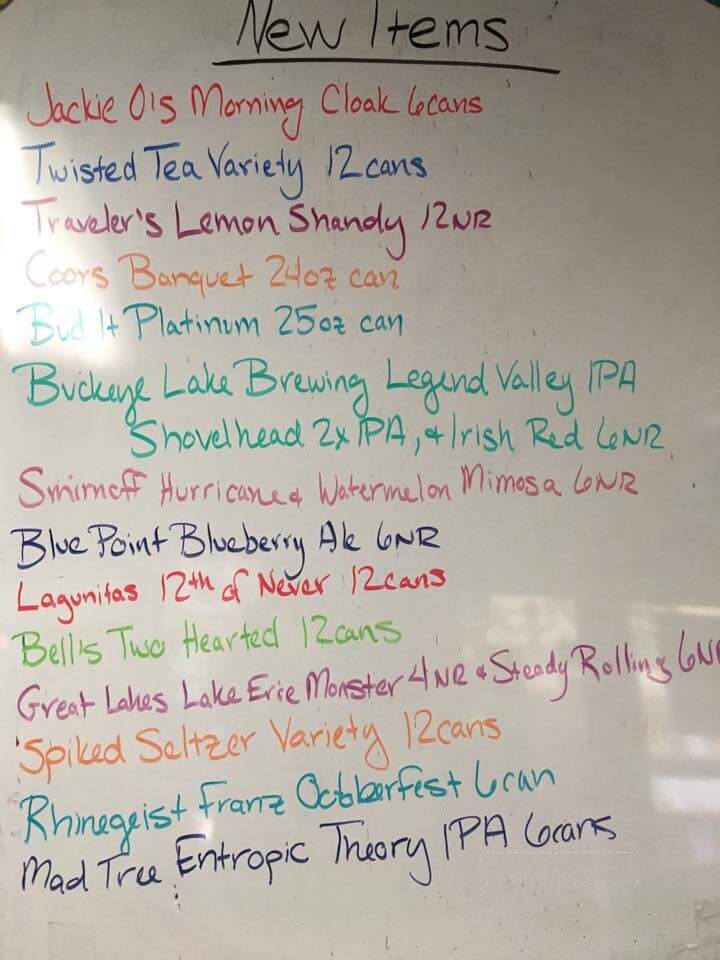 New Items
Jackie O's Morning Cloak 6cans
Twisted Tea Variety 12cans
Traveler's Lemon Shandy 12NR
Coors Banquet 24oz can
Bud lt Platinum 25oz can
Buckeye Lake Brewing Legend Valley IPA
Shovelhead 2x IPA, & Irish Red 6NR
Smirnoff Hurricane & Watermelon Mimosa 6NR
Blue Point Blueberry Ale 6NR
Lagunitas 12th of Never 12cans
Bell's Two Hearted 12cans
Great Lakes Lake Erie Monster 4NR & Steady Rolling 6NR
Spiked Seltzer Variety 12cans
Rhinegeist Franz Octoberfest 6can
Mad Tree Entropic Theory IPA 6cans